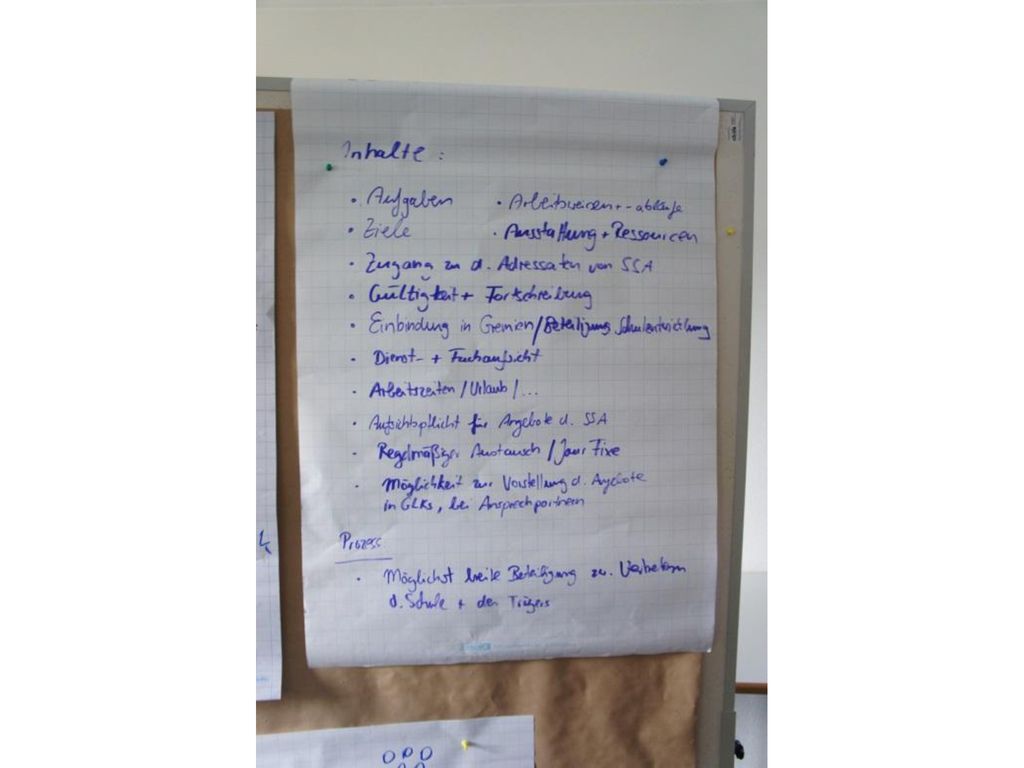 Inhalte :
• Aufgaben • Arbeitsweisen + -abläufe
• Ziele • Ausstattung + Ressourcen
• Zugang zu d. Adressaten von SSA
• Gültigkeit + Fortschreibung
• Einbindung in Gremien / Beteiligung Schulentwicklung
• Dienst- + Fachaufsicht
• Arbeitszeiten / Urlaub / ...
• Aufsichtspflicht für Angebote d. SSA
• Regelmäßiger Austausch / Jour Fixe
• Möglichkeit zur Vorstellung d. Angebote
in GLKs, bei Ansprechpartnern
Prozess
• Möglichst breite Beteiligung v. Vertretern
d. Schule + des Trägers